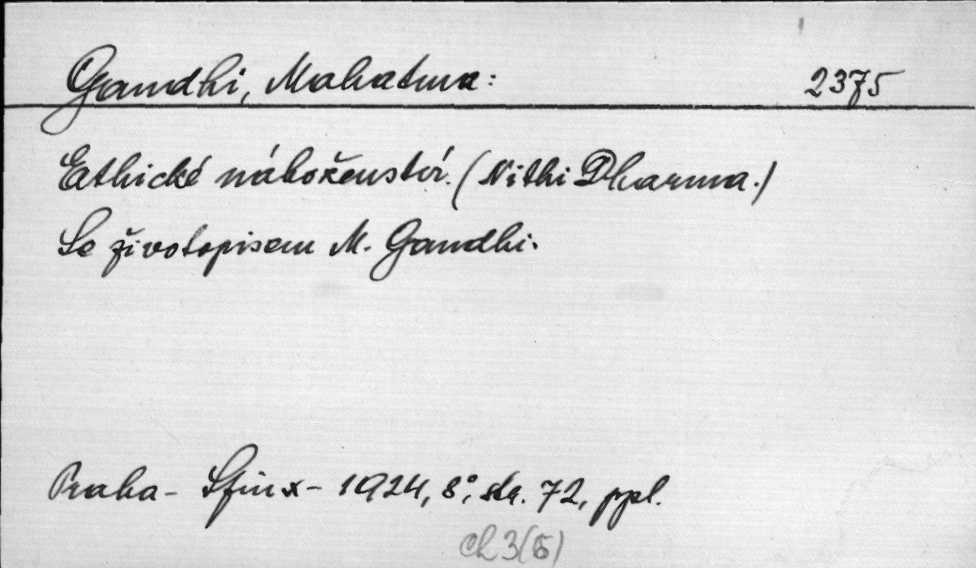 Gandhi, Mahatma: 2375
Ethické náboženství. (Nithi Dharma.)
Se životopisem M. Gandhi.
Praha - Sfinx - 1924, 8°, str. 72, ppl.
Ch 3(5)